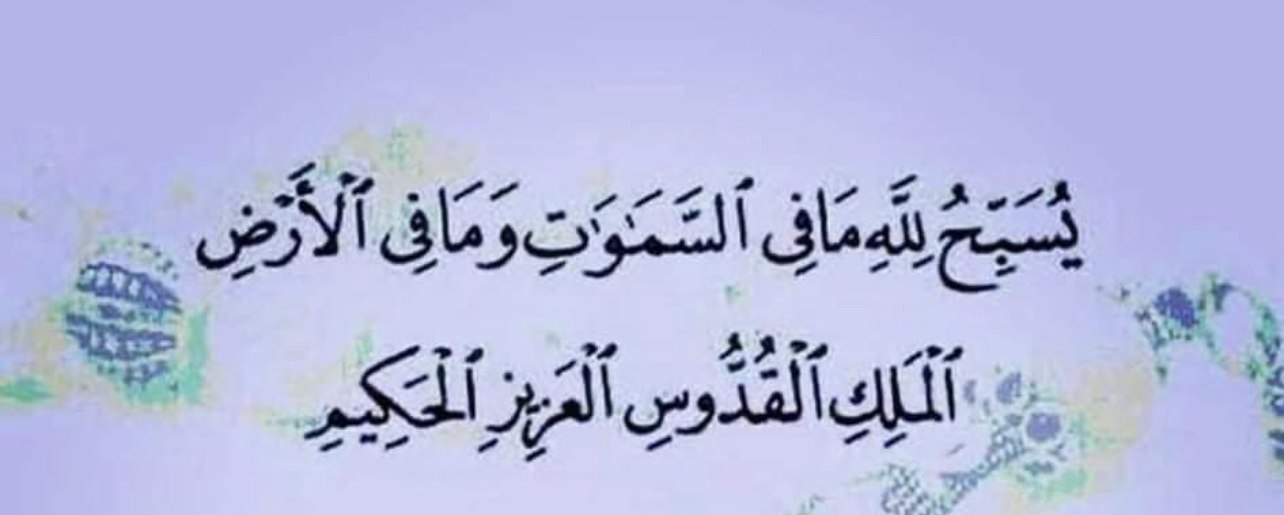 يُسَبِّحُ لِلَّهِ مَا فِي ٱلسَّمَٰوَٰتِ وَمَا فِي ٱلْأَرْضِ
ٱلْمَلِكِ ٱلْقُدُّوسِ ٱلْعَزِيزِ ٱلْحَكِيمِ